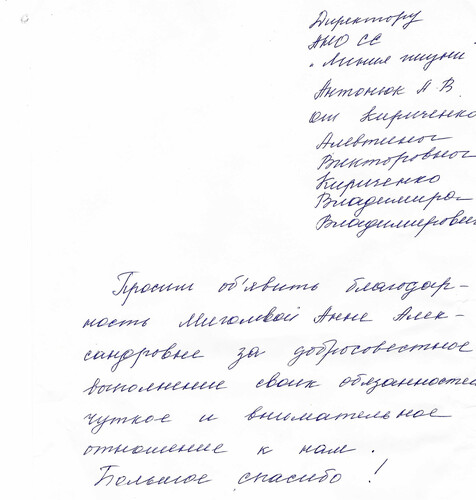 Директору
АНО СС
"Линия жизни
Антонюк А.В.
от Кириченко
Алевтины
Викторовны
Кириченко
Владимира
Владимирович
Просим об'явить благодар-
ность Мигалевой Анне Алек-
сандровне за добросовестное
выполнение своих обязанностей
чуткое и внимательное
отношение к нам.
Большое спасибо!